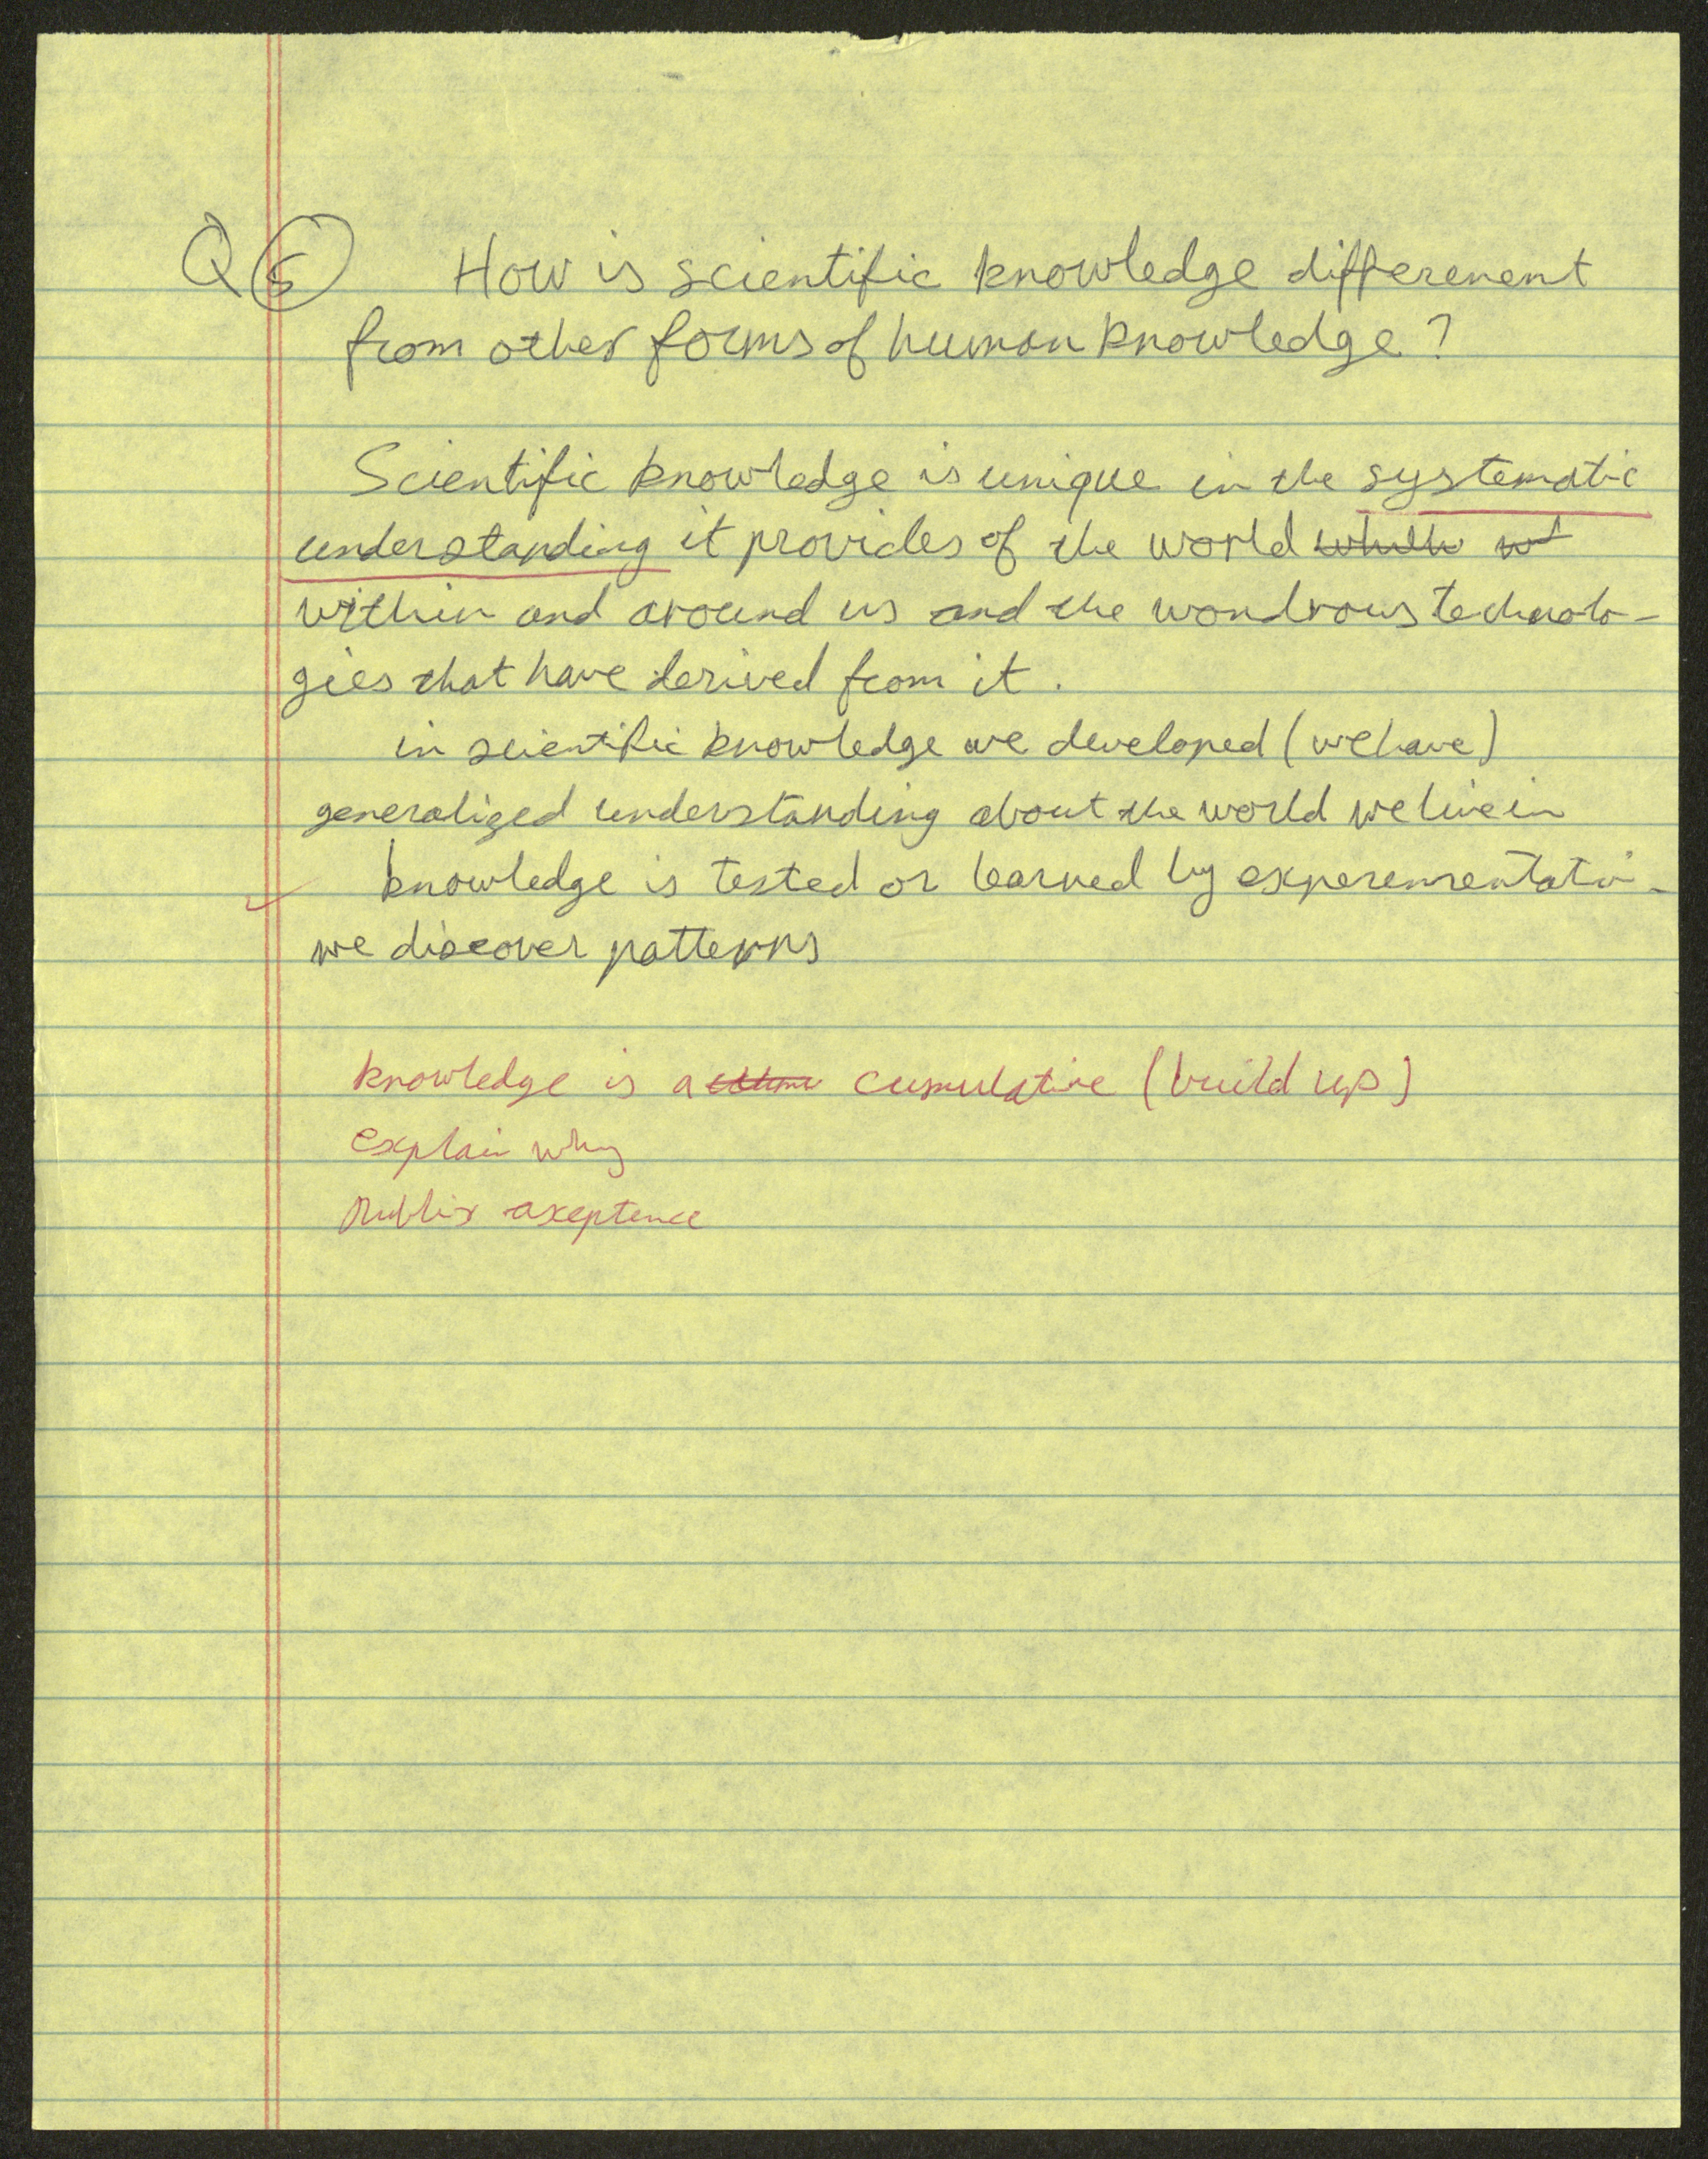 Q 5 How is scientific knowledge differenent
from other forms of human knowledge?
Scientific knowledge is unique in the systematic
understanding it provides of the world
within and around us and the wondrous technolo-
gies that have derived from it.
in scientific knowledge we developed (we have)
generalized understanding about the world we live in
knowledge is tested or learned by experementatio-
we discover patterns
knowledge is a cumulative (build up)
explain why
Public axeptence